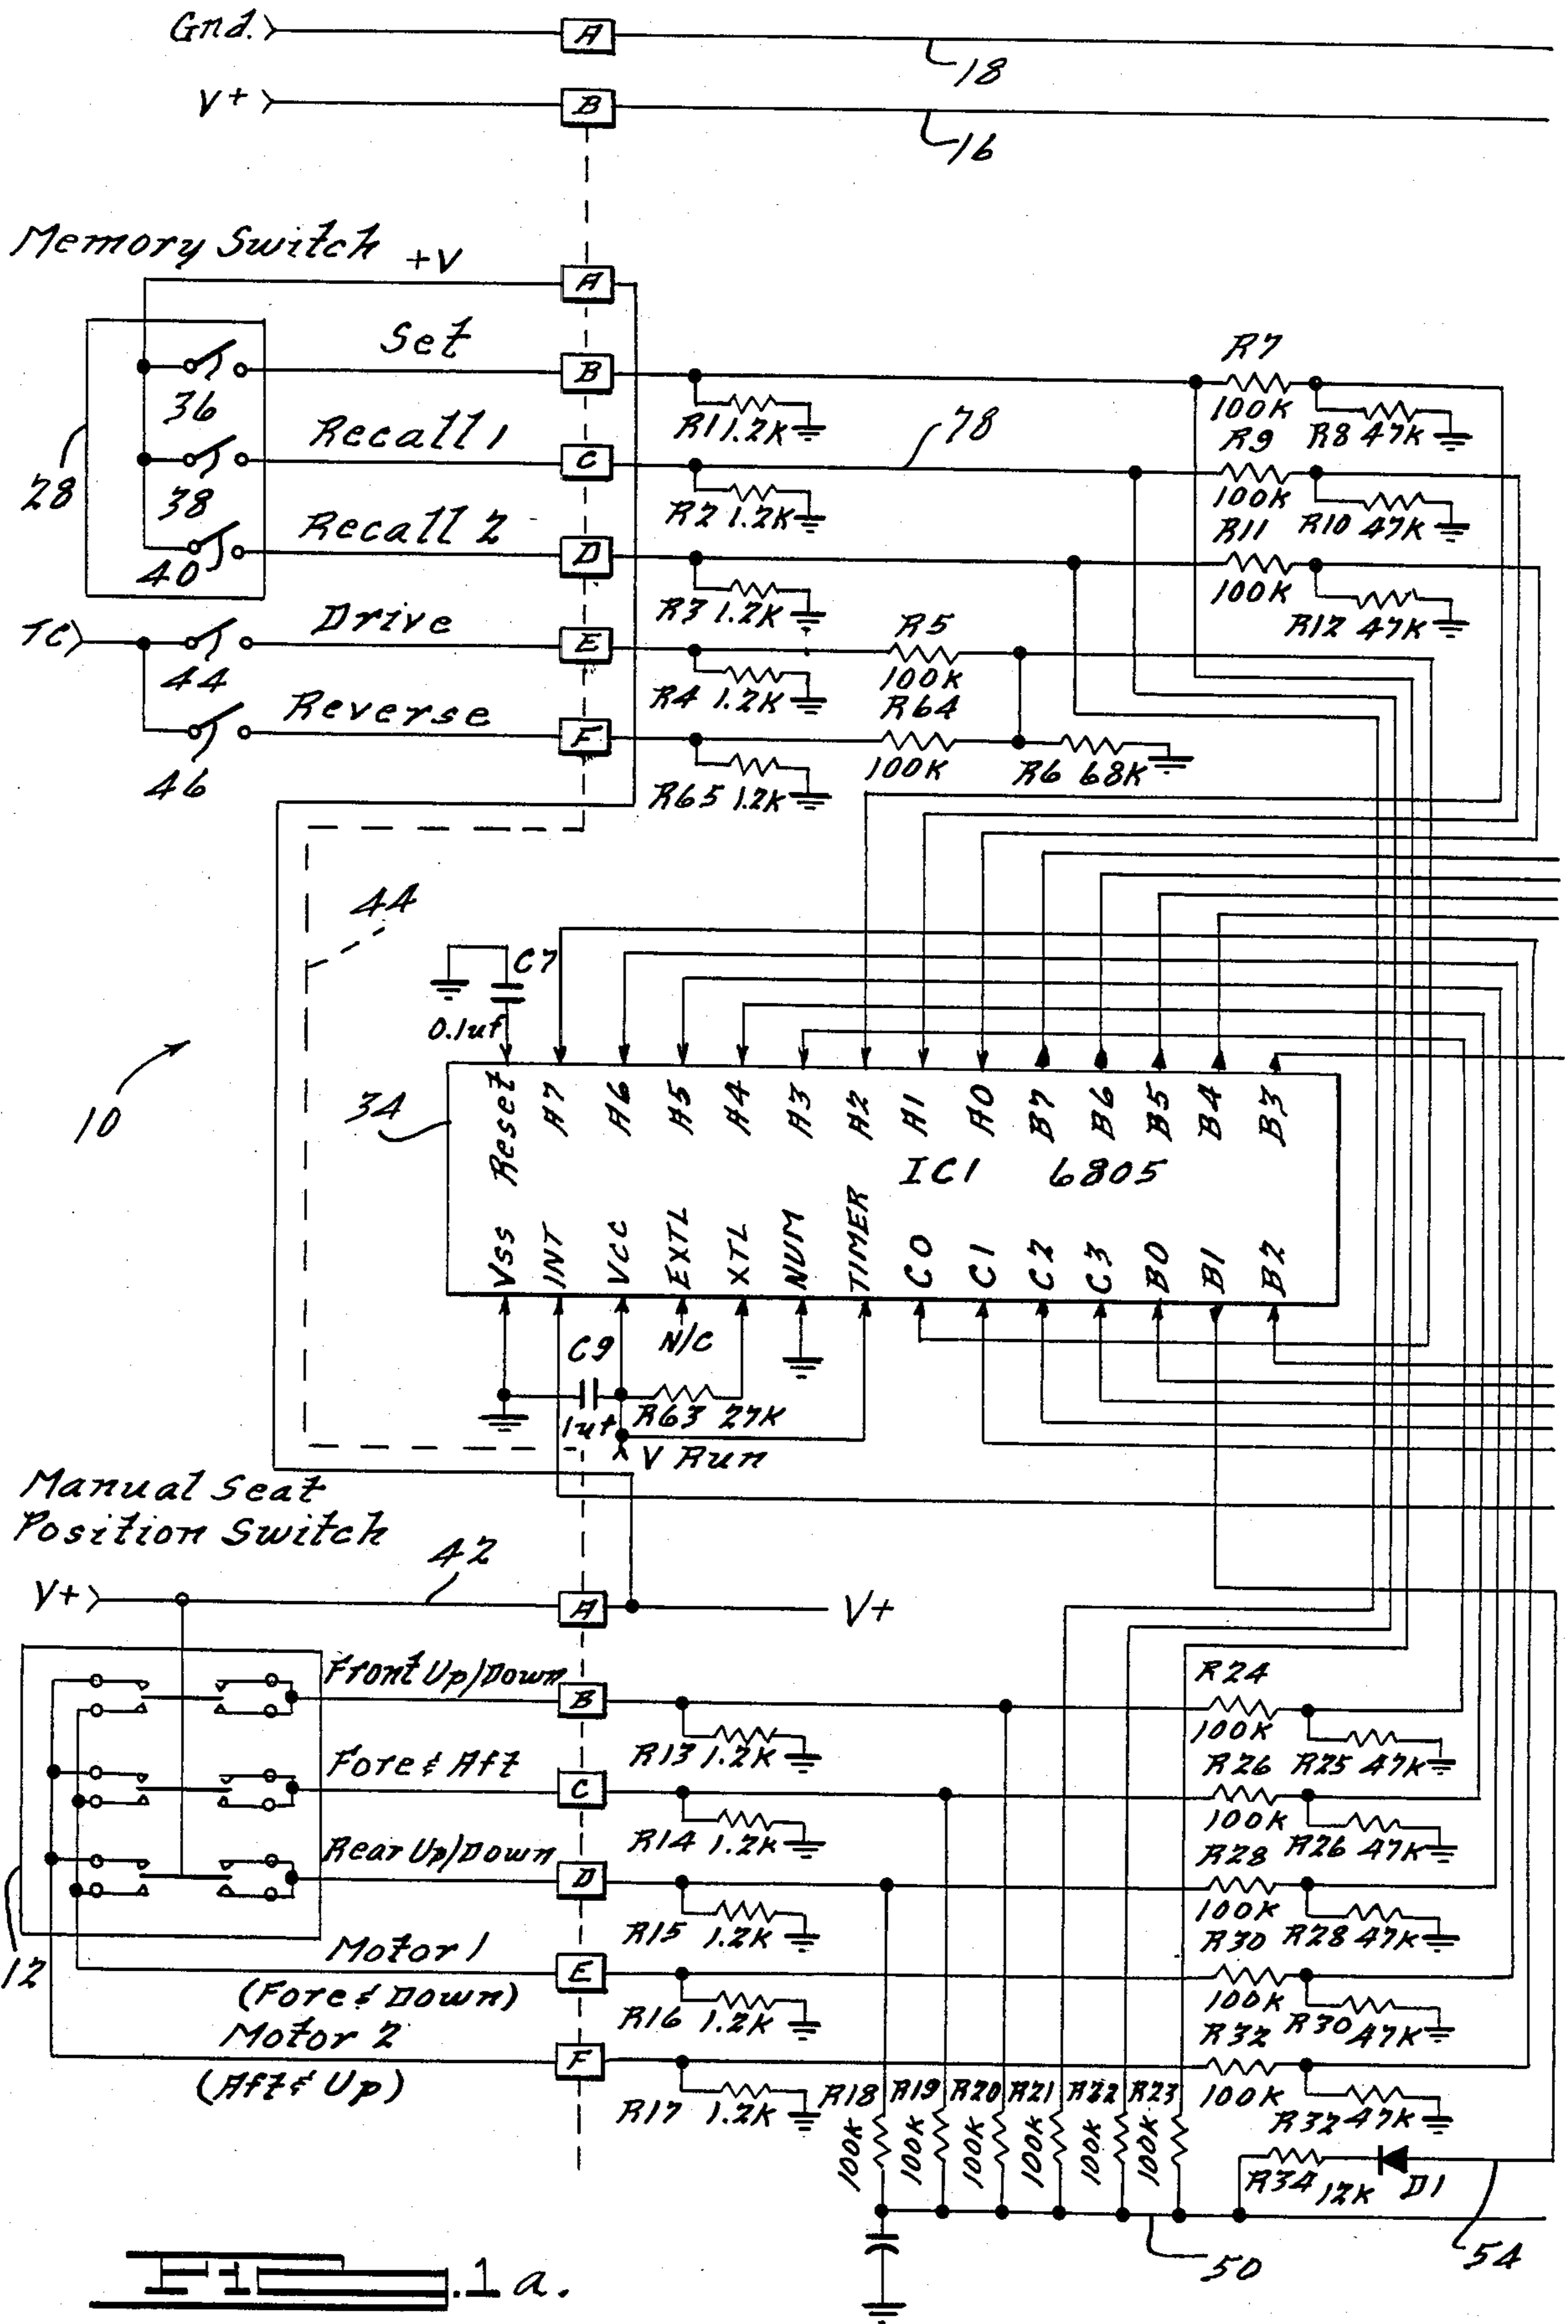 Gnd. A
18
V+ B
16
Memory Switch +V A
Set B
36
R1 1.2K
R7
100K
R8 47K
28
Recall 1 C
78
38
R2 1.2K
R9
100K
R10 47K
Recall 2 D
40
R3 1.2K
R11
100K
R12 47K
TC Drive E
44
R4 1.2K
R5
100K
Reverse F
46
R65 1.2K
R64
100K
R6 68K
44
C7
0.1uf
10
34
Reset A7 A6 A5 A4 A3 A2 A1 A0 B7 B6 B5 B4 B3
IC1 6805
Vss INT Vcc EXTL XTL NUM TIMER C0 C1 C2 C3 B0 B1 B2
C9
N/C
1uf
R63 27K
V Run
Manual Seat
Position Switch
42
V+ A V+
Front Up/Down B
R13 1.2K
R24
100K
R25 47K
Fore & Aft C
R14 1.2K
R26
100K
R26 47K
Rear Up/Down D
R15 1.2K
R28
100K
R28 47K
12
Motor 1 E
(Fore & Down)
R16 1.2K
R30
100K
R30 47K
Motor 2 F
(Aft & Up)
R17 1.2K
R32
100K
R32 47K
R18 R19 R20 R21 R22 R23
100K 100K 100K 100K 100K 100K
R34 12K D1
50
54
Fig. 1a.